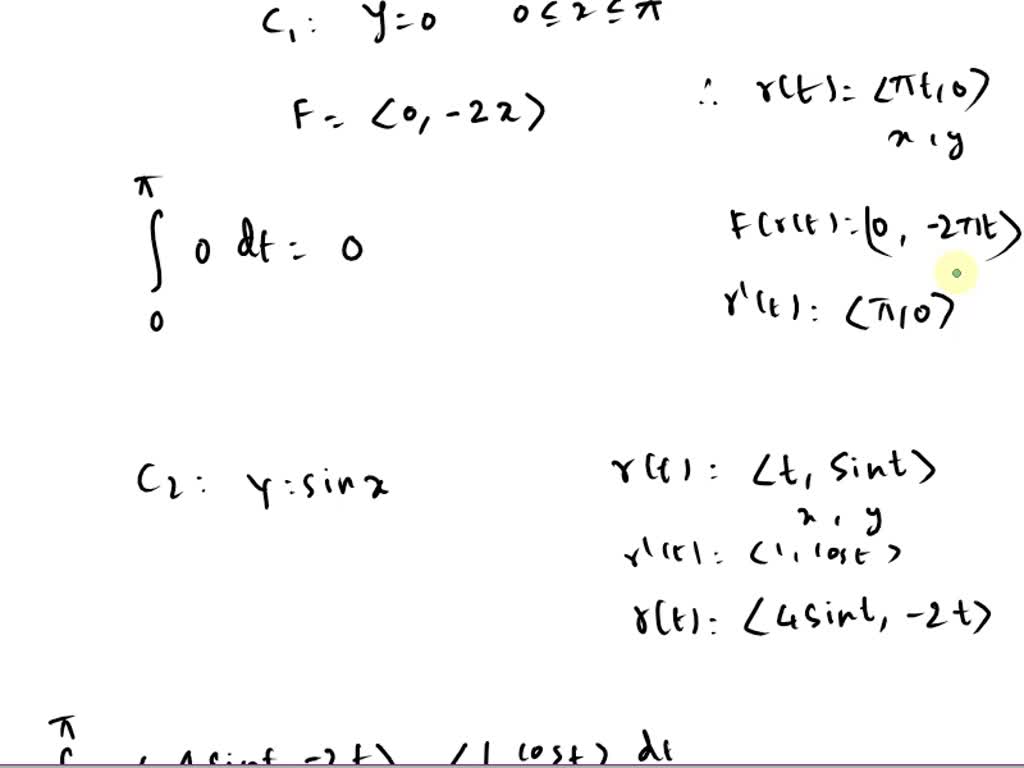 C₁: y=0 0≤x≤π
F = <0, -2x>
∴ r(t): <πt, 0>
x, y
π
∫ 0 dt = 0
0
F(r(t): <0, -2πt>
r'(t): <π, 0>
C₂: y:sinx
r(t): <t, sint>
x, y
r'(t): <1, cost>
r(t): <4sint, -2t>
π
∫ <4sint -2t> <1 cost> dt